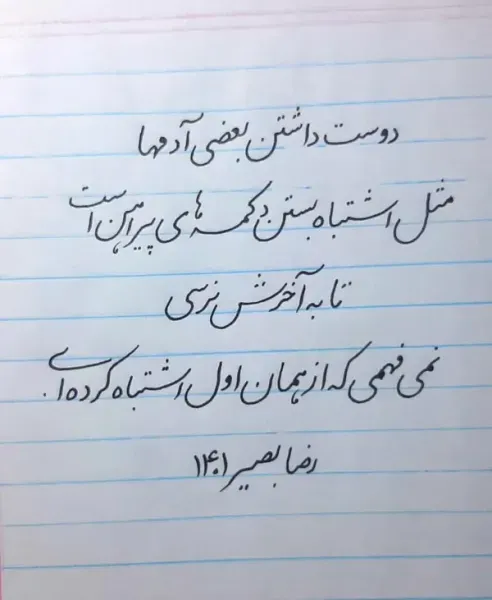 دوست داشتن بعضی آدمها
مثل اشتباه بستن دکمه های پیراهن است
تا به آخرش نرسی
نمی فهمی که از همان اول اشتباه کرده ای.
رضا بصیر ۱۴۰۱